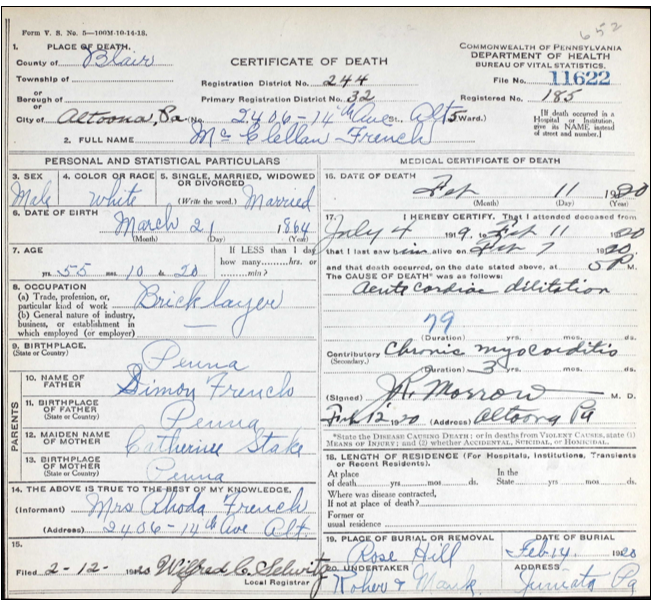 652
Form V. S. No. 5—100M-10-14-18.
1. PLACE OF DEATH.
County of Blair
CERTIFICATE OF DEATH
COMMONWEALTH OF PENNSYLVANIA
DEPARTMENT OF HEALTH
BUREAU OF VITAL STATISTICS.
Township of
or
Registration District No. 244
File No. 11622
Borough of
or
Primary Registration District No. 32
Registered No. 185
City of Altoona, Pa (No. 2406-14th Ave St., Alt 5 Ward.)
[If death occurred in a Hospital or Institution, give its NAME, instead of street and number.]
2. FULL NAME McClellan French
PERSONAL AND STATISTICAL PARTICULARS
MEDICAL CERTIFICATE OF DEATH
3. SEX
Male
4. COLOR OR RACE
white
5. SINGLE, MARRIED, WIDOWED OR DIVORCED
(Write the word.) Married
6. DATE OF BIRTH
March 21 1864
(Month) (Day) (Year)
7. AGE
If LESS than 1 day how many hrs. or min.?
55 yrs. 10 mos. 20 ds.
8. OCCUPATION
(a) Trade, profession, or particular kind of work Bricklayer
(b) General nature of industry, business, or establishment in which employed (or employer)
9. BIRTHPLACE.
(State or Country)
Penna
PARENTS
10. NAME OF FATHER
Simon French
11. BIRTHPLACE OF FATHER
(State or Country)
Penna
12. MAIDEN NAME OF MOTHER
Catherine Stake
13. BIRTHPLACE OF MOTHER
(State or Country)
Penna
14. THE ABOVE IS TRUE TO THE BEST OF MY KNOWLEDGE.
(Informant) Mrs Rhoda French
(Address) 2406-14th Ave Alt.
15.
Filed 2-12- 1920 Wilfred C.
Local Registrar
16. DATE OF DEATH
Feb 11 1920
(Month) (Day) (Year)
17. I HEREBY CERTIFY, That I attended deceased from
July 4 1919, to Feb 11 1920
that I last saw him alive on Feb 7 1920
and that death occurred, on the date stated above, at 5 P M.
The CAUSE OF DEATH* was as follows:
Acute cardiac dilitation
79
(Duration) yrs. mos. ds.
Contributory Chronic myocarditis
(Secondary.)
(Duration) 3 yrs. mos. ds.
(Signed) J.R. Morrow M. D.
Feb 12 1920 (Address) Altoona Pa
*State the DISEASE CAUSING DEATH; or in deaths from VIOLENT CAUSES, state (1) MEANS OF INJURY; and (2) whether ACCIDENTAL, SUICIDAL, or HOMICIDAL.
18. LENGTH OF RESIDENCE (For Hospitals, Institutions, Transients or Recent Residents).
At place of death yrs. mos. ds. In the State yrs. mos. ds.
Where was disease contracted, If not at place of death?
Former or usual residence
19. PLACE OF BURIAL OR REMOVAL
Rose Hill
DATE OF BURIAL
Feb 14 1920
20. UNDERTAKER
ADDRESS
Juniata Pa